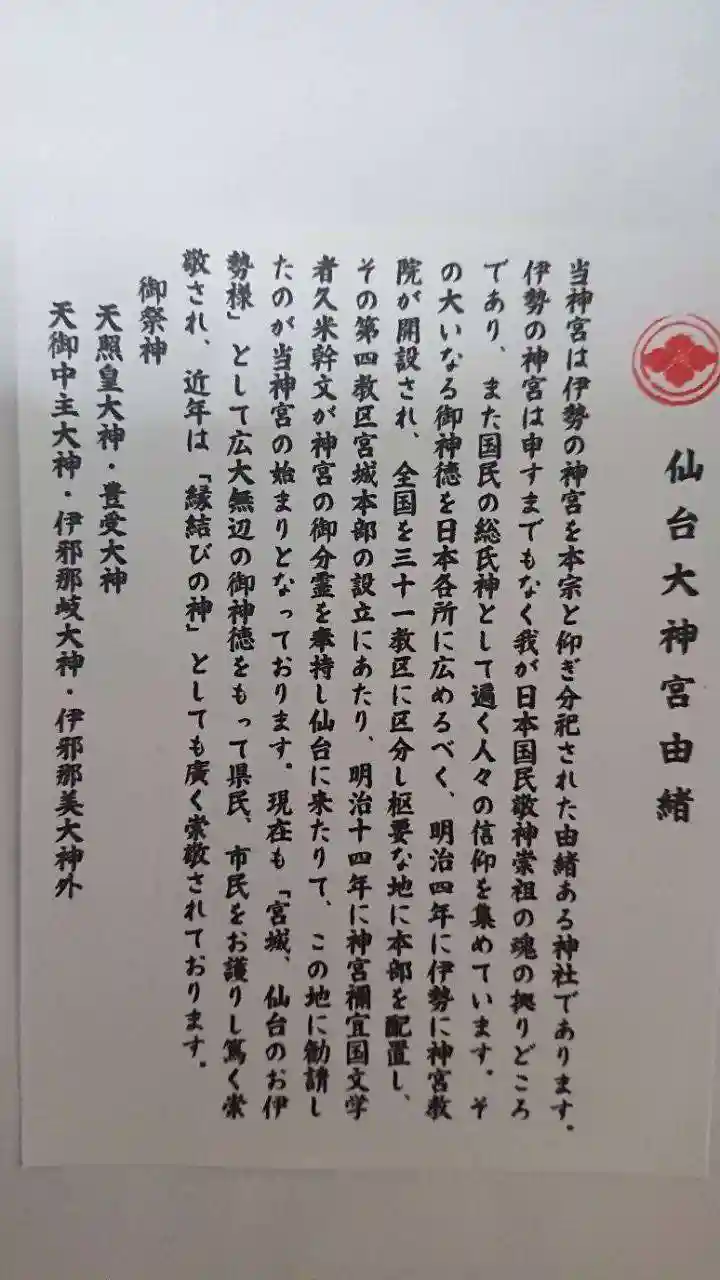 仙台大神宮由緒
当神宮は伊勢の神宮を本宗と仰ぎ分祀された由緒ある神社であります。
伊勢の神宮は申すまでもなく我が日本国民敬神崇祖の魂の拠りどころ
であり、また国民の総氏神として遍く人々の信仰を集めています。そ
の大いなる御神徳を日本各所に広めるべく、明治四年に伊勢に神宮教
院が開設され、全国を三十一教区に区分し枢要な地に本部を配置し、
その第四教区宮城本部の設立にあたり、明治十四年に神宮禰宜国文学
者久米幹文が神宮の御分霊を奉持し仙台に来たりて、この地に勧請し
たのが当神宮の始まりとなっております。現在も「宮城、仙台のお伊
勢様」として広大無辺の御神徳をもって県民、市民をお護りし篤く崇
敬され、近年は「縁結びの神」としても廣く崇敬されております。
御祭神
天照皇大神・豊受大神
天御中主大神・伊邪那岐大神・伊邪那美大神外